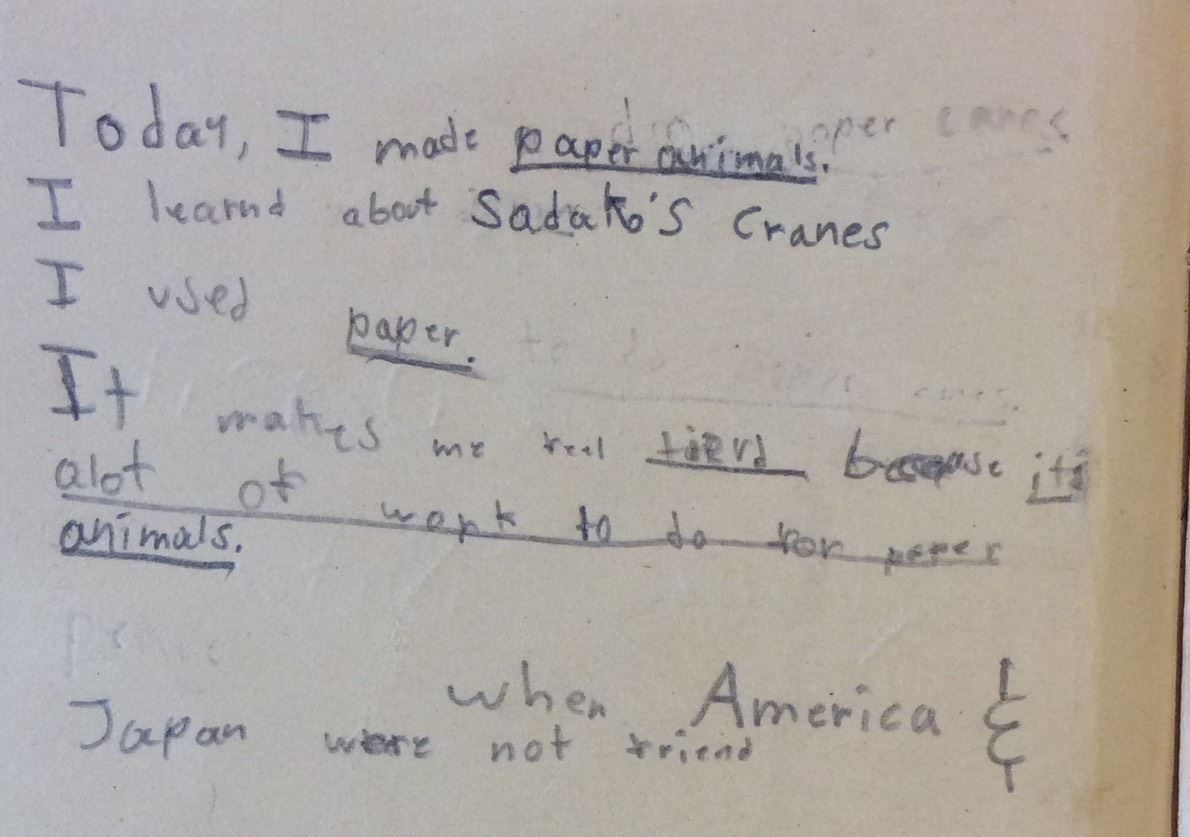 Today, I made paper animals.
I learnd about Sadako's Cranes
I used paper.
It makes me feel tierd because its
alot of work to do for peper
animals.
when America &
Japan were not friend